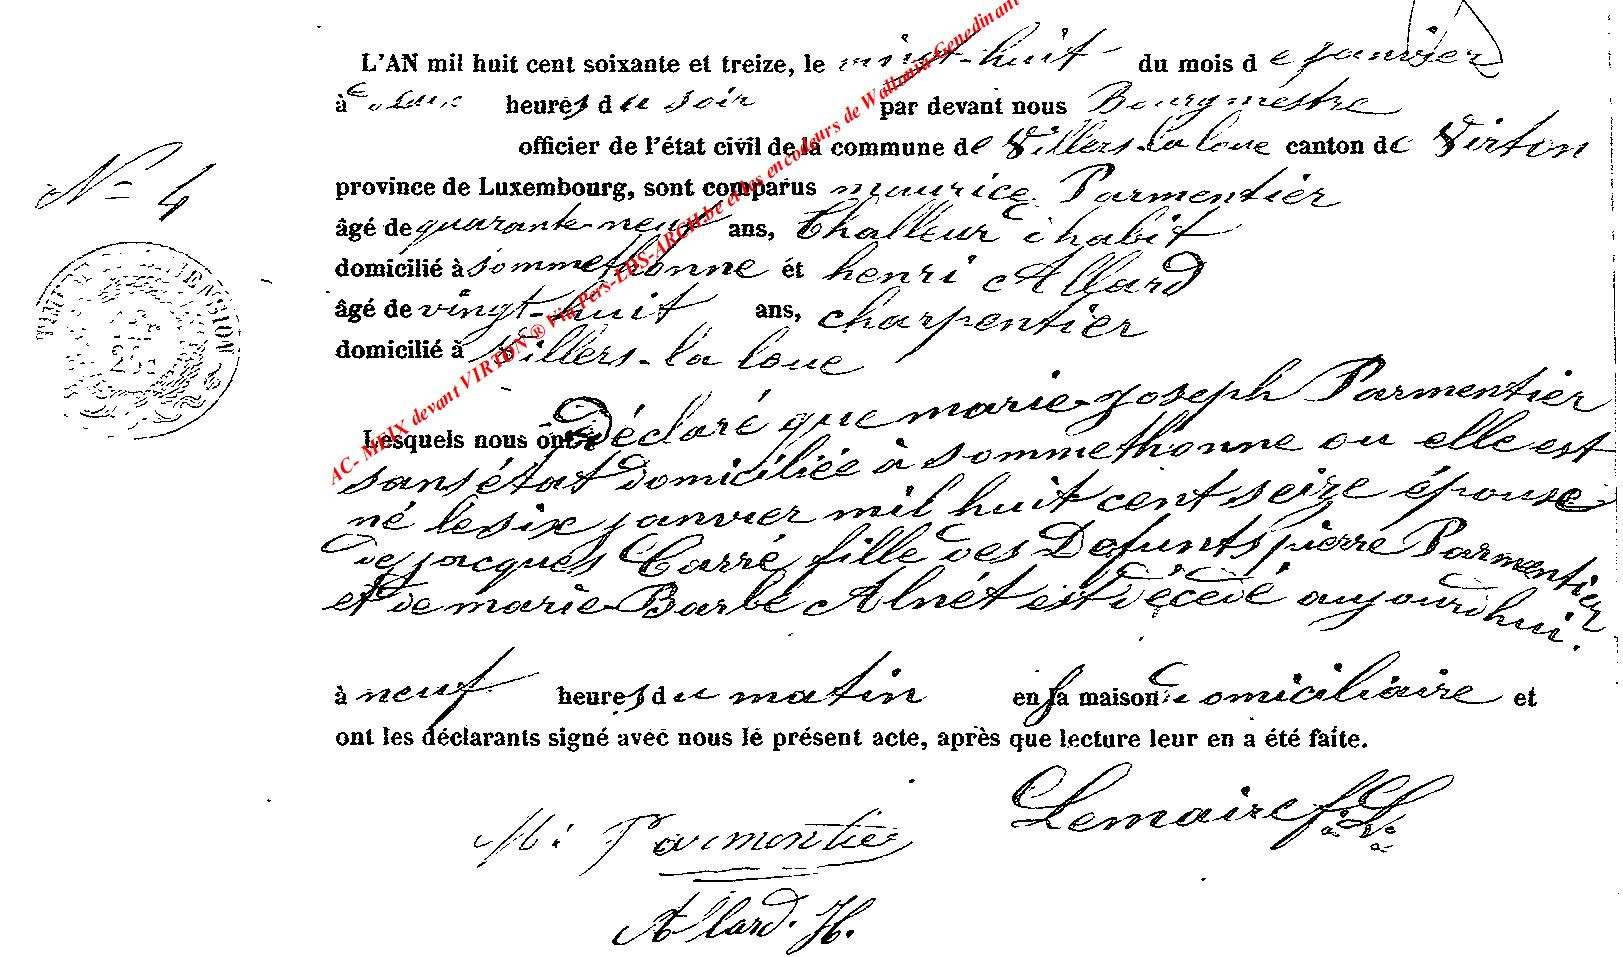 L'AN mil huit cent soixante et treize, le vingt-huit du mois de janvier
à deux heures du soir par devant nous Bourgmestre
officier de l'état civil de la commune de Villers-la loue canton de Virton
N° 4
province de Luxembourg, sont comparus maurice Parmentier
âgé de quarante neuf ans, thalleur d'habit
domicilié à sommethonne et henri Allard
âgé de vingt-huit ans, charpentier
domicilié à Villers-la loue
Lesquels nous ont Déclaré que marie-joseph Parmentier
sans état domiciliée à sommethonne ou elle est
né le six janvier mil huit cent seize épouse
de jacques Carré fille des Defunts pierre Parmentier
et de marie-Barbe Alnét est décédé aujourdhui.
à neuf heures du matin en sa maison domiciliaire et
ont les déclarants signé avec nous le présent acte, après que lecture leur en a été faite.
Lemaire
M. Parmentier
Allard. H.
AC- MEIX devant VIRTON ® Via Pers-EDS-ARCH.be et les encodeurs de Wallonia Genedinant